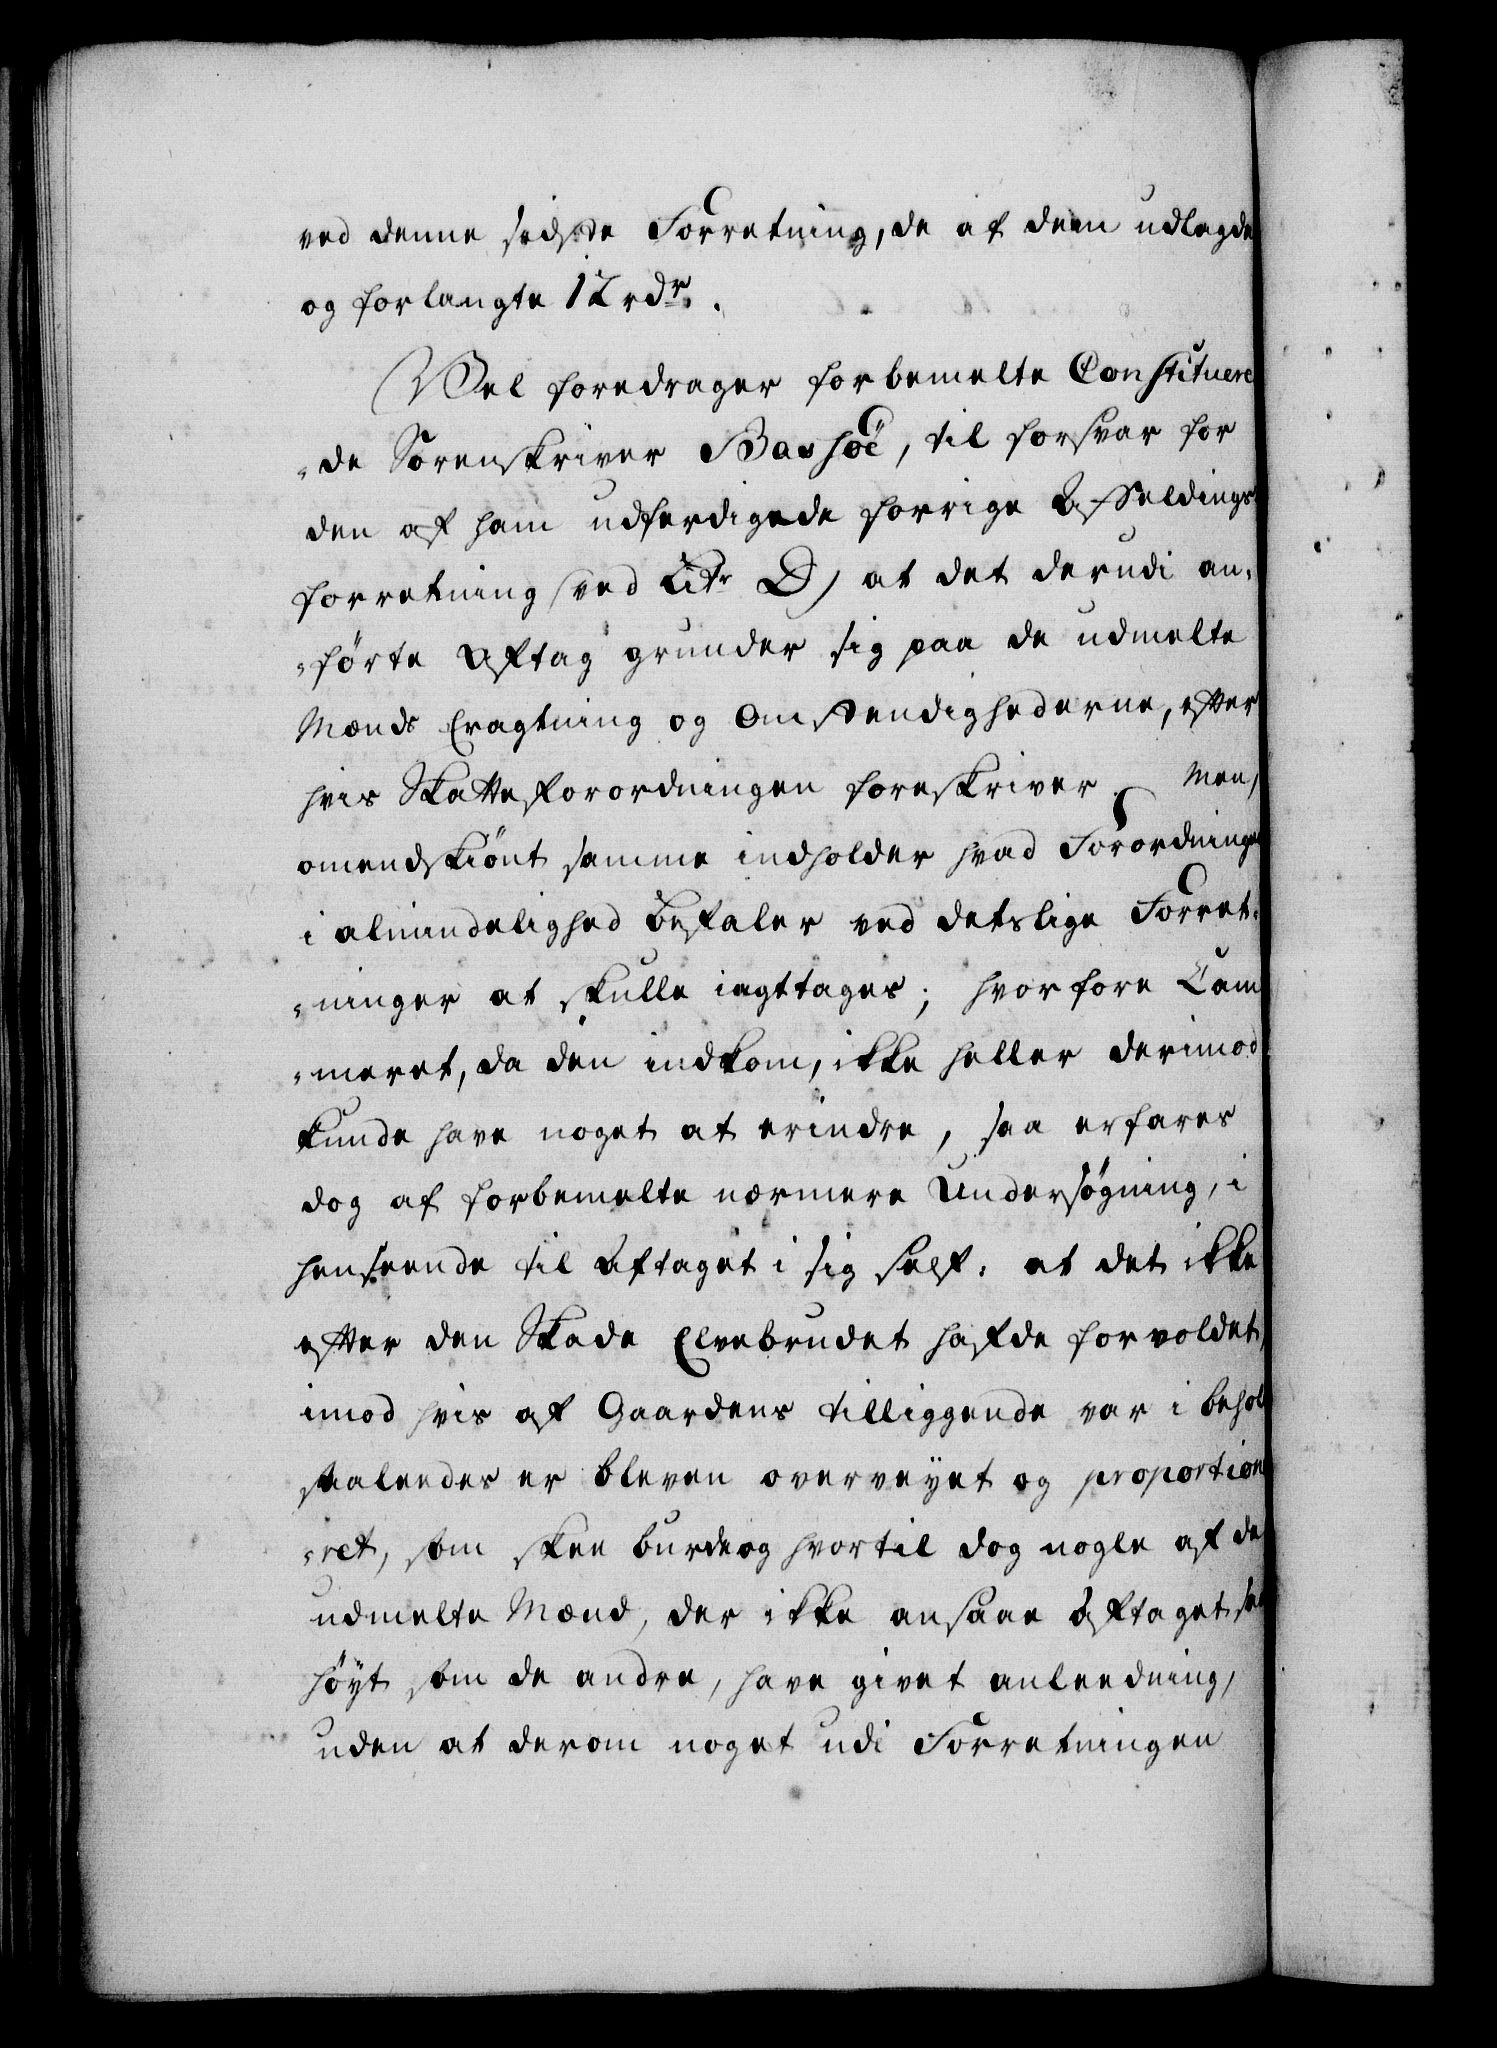 ved denne sidste Forretning, de af dem udlagde
og forlangte 12 rdr.
Vel foredrager forbemelte Constituere
-de Sorenskriver Bashöe, til forsvar for
den af ham udferdigede forrige Affeldings
forretning /ved Litr D/ at det derudi an-
-førte Aftag grunder sig paa de udmelte
Mænds Eragtning og Omstendighederne, efter
hvis Skatteforordningen foreskriver. Men,
omendskiönt samme indholder hvad Forordningen
i almindelighed befaler ved detslige Forret-
-ninger at skulle iagttages; hvorfore Cam
-meret, da den indkom, ikke heller derimod
kunde have noget at erindre, saa erfares
dog af forbemelte nærmere Undersøgning, i
henseende til Aftaget i sig self, at det ikke
efter den Skade Elvebrudet hafde forvoldet,
imod hvis af Gaardens tilliggende var i behold
saaledes er bleven overveyet og proportione
-ret, som skee burde og hvortil dog nogle af de
udmelte Mænd, der ikke ansaae Aftaget saa
höyt som de andre, have givet anleedning,
uden at derom noget udi Forretningen